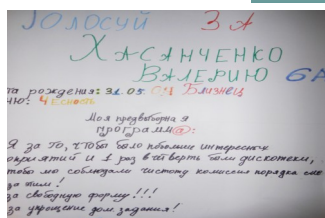 Голосуй ЗА
ХАСАНЧЕНКО
ВАЛЕРИЮ 6А
та рождения: 31.05 Близнец
ню: Честность
Моя предвыборная
программ@:
Я за то, чтобы было побольше интересных
оприятий и 1 раз в четверть были дискотеки,
тобы мы соблюдали чистоту комиссия порядка
за тим!
за свободную форму!!!
за упрощение дом задания!